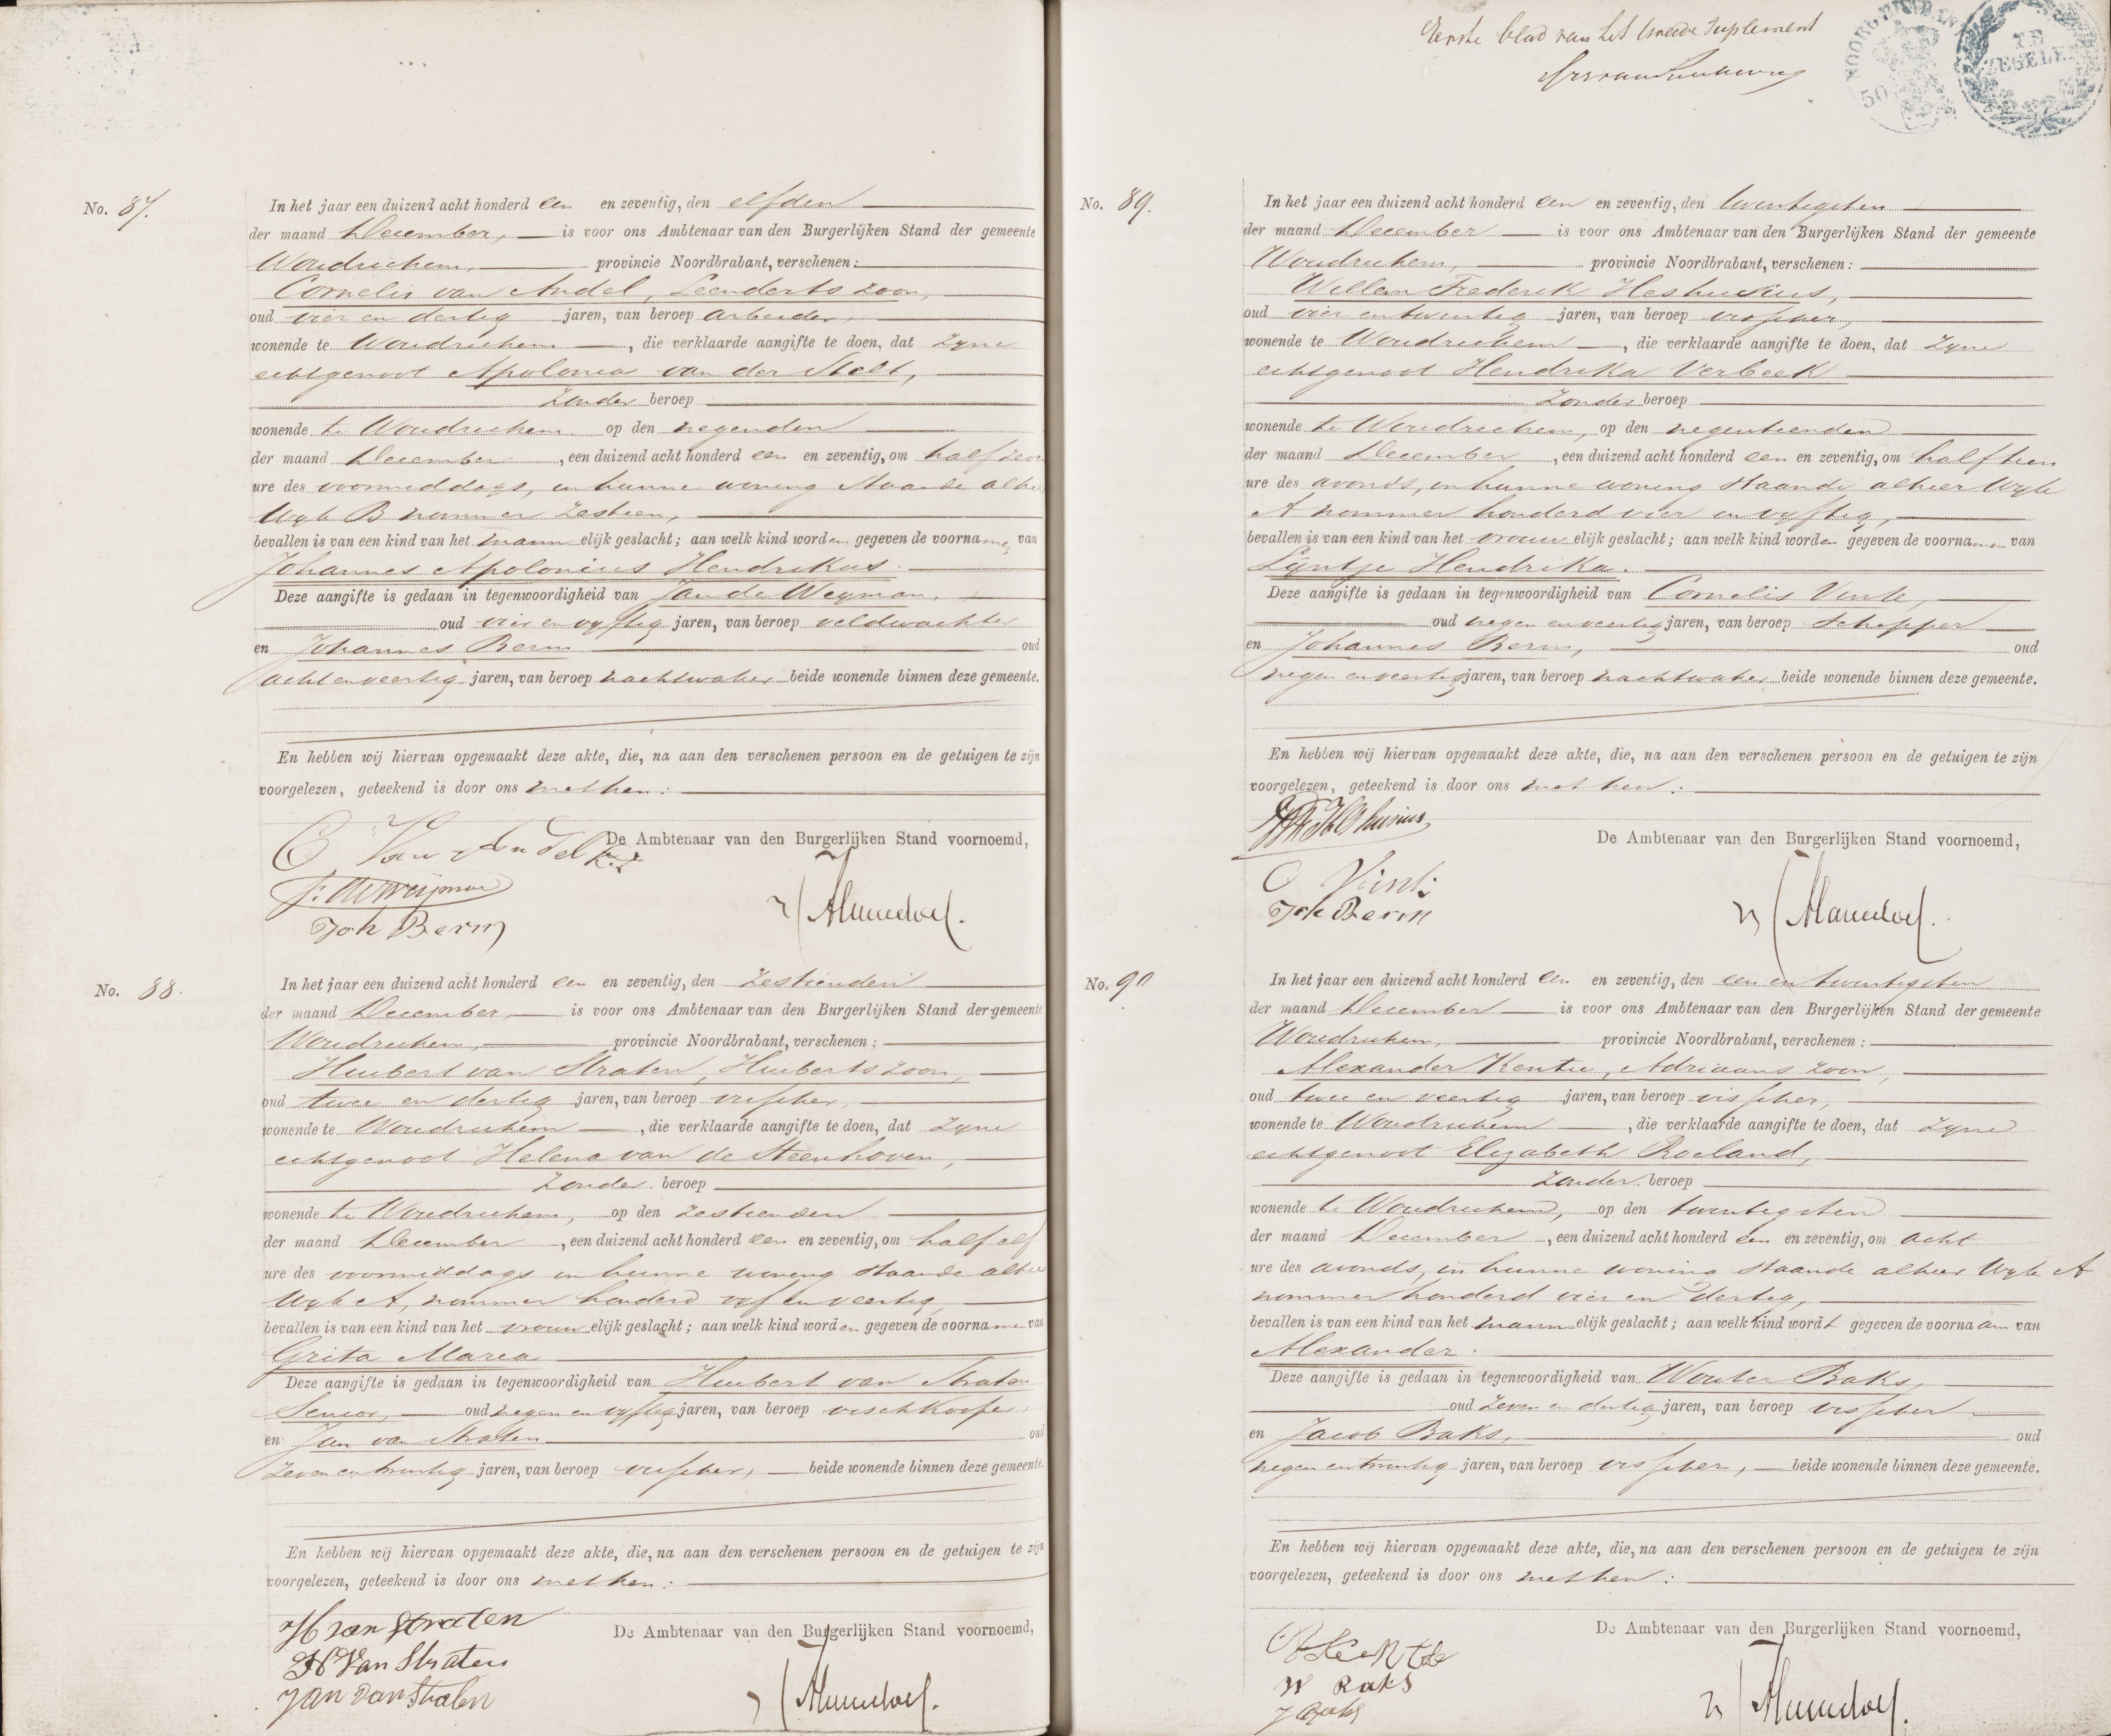 No. 87.
In het jaar een duizend acht honderd een en zeventig, den elfden
der maand December, is voor ons Ambtenaar van den Burgerlijken Stand der gemeente
Woudrichem, provincie Noordbrabant, verschenen:
Cornelis van Andel, Leenderts zoon,
oud vier en dertig jaren, van beroep arbeider,
wonende te Woudrichem, die verklaarde aangifte te doen, dat zyne
echtgenoot Apolonia van der Stelt,
zonder beroep
wonende te Woudrichem op den negenden
der maand December, een duizend acht honderd een en zeventig, om half zeven
ure des voormiddags, in hunne woning staande alhier
Wyk B nommer zestien,
bevallen is van een kind van het mannelijk geslacht; aan welk kind worden gegeven de voornamen van
Johannes Apolonius Hendrikus.
Deze aangifte is gedaan in tegenwoordigheid van Jan de Weyman,
oud vier en vyftig jaren, van beroep veldwachter
en Johannes Berm oud
acht en veertig jaren, van beroep nachtwaker beide wonende binnen deze gemeente.
En hebben wij hiervan opgemaakt deze akte, die, na aan den verschenen persoon en de getuigen te zijn
voorgelezen, geteekend is door ons met hen:
De Ambtenaar van den Burgerlijken Stand voornoemd,
C Van Andel Lz
Joh Berm
No. 88.
In het jaar een duizend acht honderd een en zeventig, den zestienden
der maand December, is voor ons Ambtenaar van den Burgerlijken Stand der gemeente
Woudrichem, provincie Noordbrabant, verschenen:
Huibert van Straten, Huiberts zoon,
oud twee en dertig jaren, van beroep visscher,
wonende te Woudrichem, die verklaarde aangifte te doen, dat zyne
echtgenoot Helena van de Steenhoven,
zonder beroep
wonende te Woudrichem, op den zestienden
der maand December, een duizend acht honderd een en zeventig, om half elf
ure des voormiddags in hunne woning staande alhier
Wyk A, nommer honderd vyf en veertig,
bevallen is van een kind van het vrouwelijk geslacht; aan welk kind worden gegeven de voornamen van
Grita Maria
Deze aangifte is gedaan in tegenwoordigheid van Huibert van Straten
Senior, oud negen en vyftig jaren, van beroep vischkooper
en Jan van Straten oud
zeven en twintig jaren, van beroep visscher, beide wonende binnen deze gemeente.
En hebben wij hiervan opgemaakt deze akte, die, na aan den verschenen persoon en de getuigen te zijn
voorgelezen, geteekend is door ons met hen:
De Ambtenaar van den Burgerlijken Stand voornoemd,
H van Straten
H Van Straten
Jan van Straten
Eerste blad van het tweede suplement
NOORD BRABANT
50
TE ZEGELEN
No. 89.
In het jaar een duizend acht honderd een en zeventig, den twintigsten
der maand December is voor ons Ambtenaar van den Burgerlijken Stand der gemeente
Woudrichem, provincie Noordbrabant, verschenen:
Willem Frederik Heshusius,
oud vier en twintig jaren, van beroep visscher,
wonende te Woudrichem, die verklaarde aangifte te doen, dat zyne
echtgenoot Hendrika Verbeek
zonder beroep
wonende te Woudrichem, op den negentienden
der maand December, een duizend acht honderd een en zeventig, om half tien
ure des avonds, in hunne woning staande alhier Wyk
A nommer honderd vier en vyftig,
bevallen is van een kind van het vrouwelijk geslacht; aan welk kind worden gegeven de voornamen van
Lyntje Hendrika.
Deze aangifte is gedaan in tegenwoordigheid van Cornelis Vink,
oud negen en veertig jaren, van beroep schipper
en Johannes Berm, oud
negen en veertig jaren, van beroep nachtwaker beide wonende binnen deze gemeente.
En hebben wij hiervan opgemaakt deze akte, die, na aan den verschenen persoon en de getuigen te zijn
voorgelezen, geteekend is door ons met hen:
De Ambtenaar van den Burgerlijken Stand voornoemd,
WF Heshusius
Joh Berm
No. 90
In het jaar een duizend acht honderd een en zeventig, den een en twintigsten
der maand December is voor ons Ambtenaar van den Burgerlijken Stand der gemeente
Woudrichem, provincie Noordbrabant, verschenen:
Alexander Kentie, Adriaans zoon,
oud twee en veertig jaren, van beroep visscher,
wonende te Woudrichem, die verklaarde aangifte te doen, dat zyne
echtgenoot Elizabeth Roeland,
zonder beroep
wonende te Woudrichem, op den twintigsten
der maand December, een duizend acht honderd een en zeventig, om acht
ure des avonds, in hunne woning staande alhier Wyk A
nommer honderd vier en dertig,
bevallen is van een kind van het mannelijk geslacht; aan welk kind wordt gegeven de voornaam van
Alexander.
Deze aangifte is gedaan in tegenwoordigheid van Wouter Baks,
oud zeven en dertig jaren, van beroep visscher
en Jacob Baks, oud
negen en twintig jaren, van beroep visscher, beide wonende binnen deze gemeente.
En hebben wij hiervan opgemaakt deze akte, die, na aan den verschenen persoon en de getuigen te zijn
voorgelezen, geteekend is door ons met hen:
De Ambtenaar van den Burgerlijken Stand voornoemd,
A Kentie
W Baks
J Baks